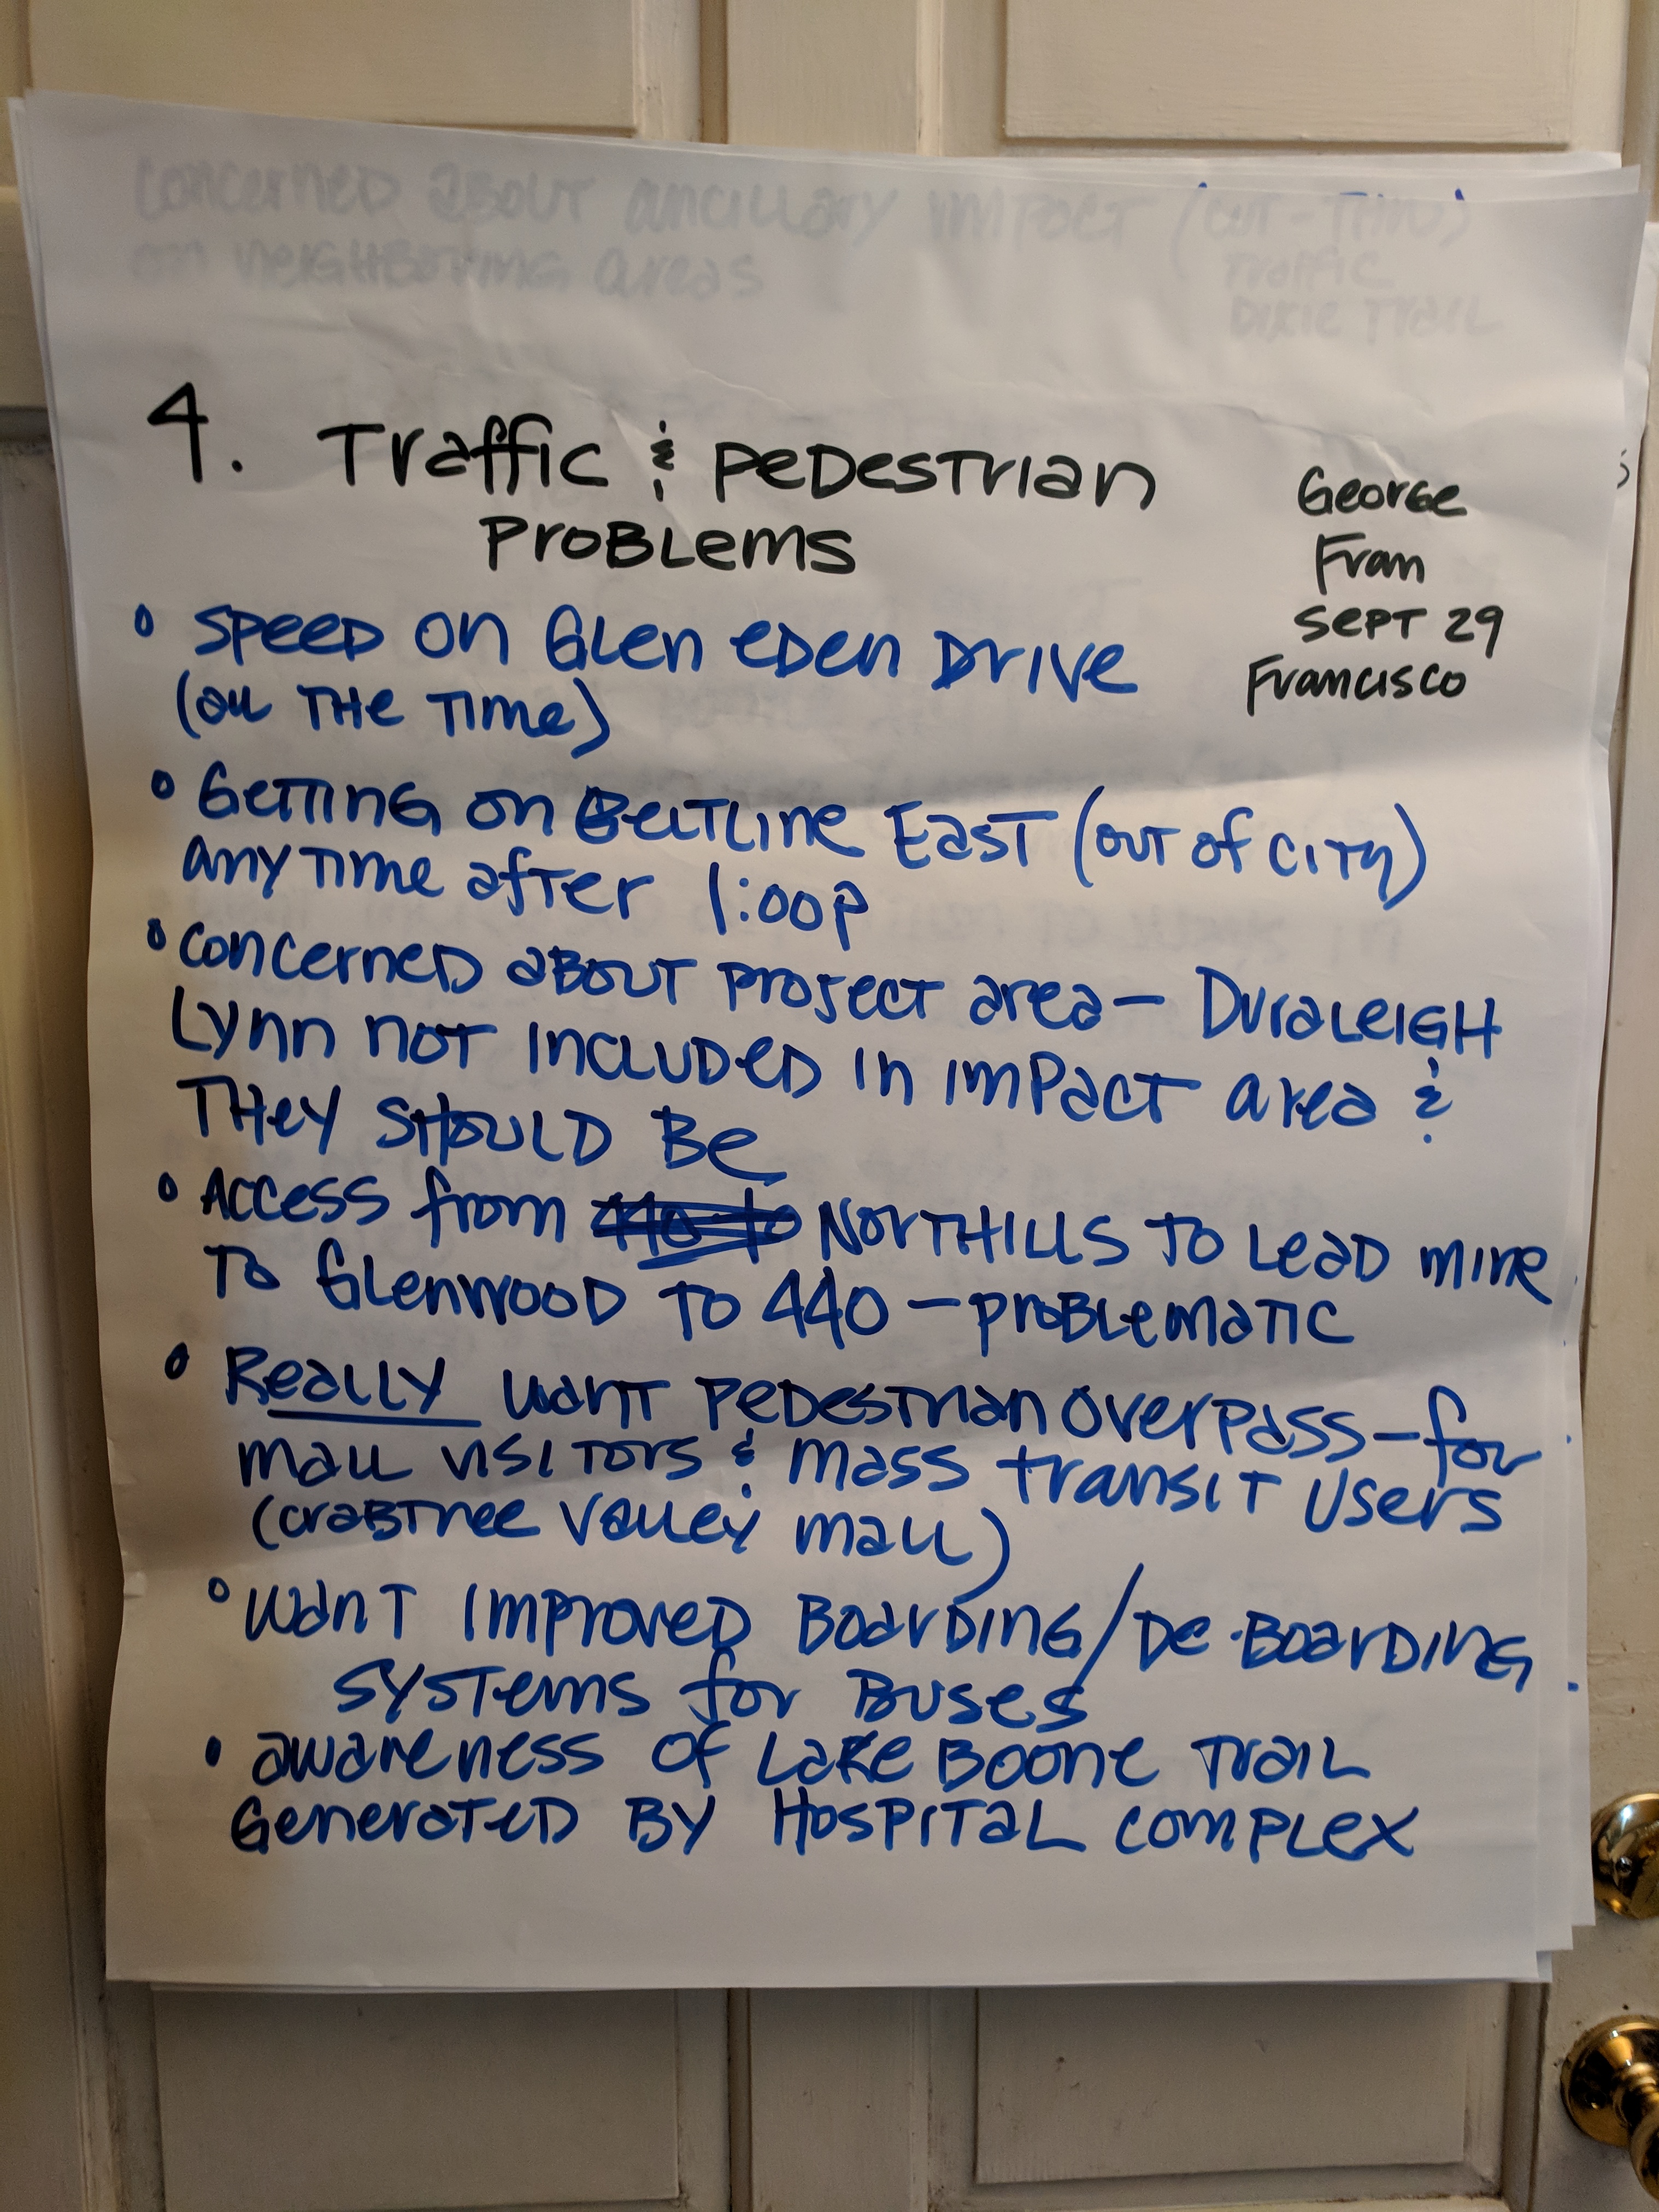 concerned about ancillary impact (cut-thru)
on neighboring areas
Traffic
Dixie Trail
4. Traffic & Pedestrian
Problems
George
Fran
Sept 29
Francisco
• Speed on Glen Eden Drive
(all the time)
• Getting on Beltline East (out of city)
anytime after 1:00p
• concerned about project area - Duraleigh
Lynn not included in impact area &
they should be
• Access from 440 to Northills to Lead Mine
to Glenwood to 440 - problematic
• Really want pedestrian overpass - for
mall visitors & mass transit users
(Crabtree Valley Mall)
• want improved boarding/de-boarding
systems for buses
• awareness of Lake Boone Trail
generated by hospital complex